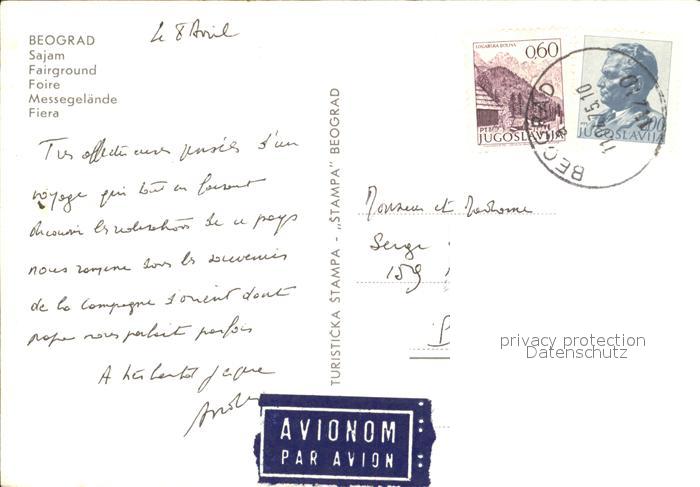 BEOGRAD
Sajam
Fairground
Foire
Messegelände
Fiera
Le 8 Avril
Très affectueuses pensées d'un
voyage qui tout en faisant
découvrir les réalisations de ce pays
nous ramène sous les souvenirs
de la Campagne d'orient dont
papa nous parlait parfois
A bientôt
TURISTICKA ŠTAMPA - „ŠTAMPA" BEOGRAD
LOGARSKA DOLINA
0,60
PTT
JUGOSLAVIJA
JUGOSLAVIJA
BEOGRAD
Monsieur et Madame
Serge
159
privacy protection
Datenschutz
AVIONOM
PAR AVION